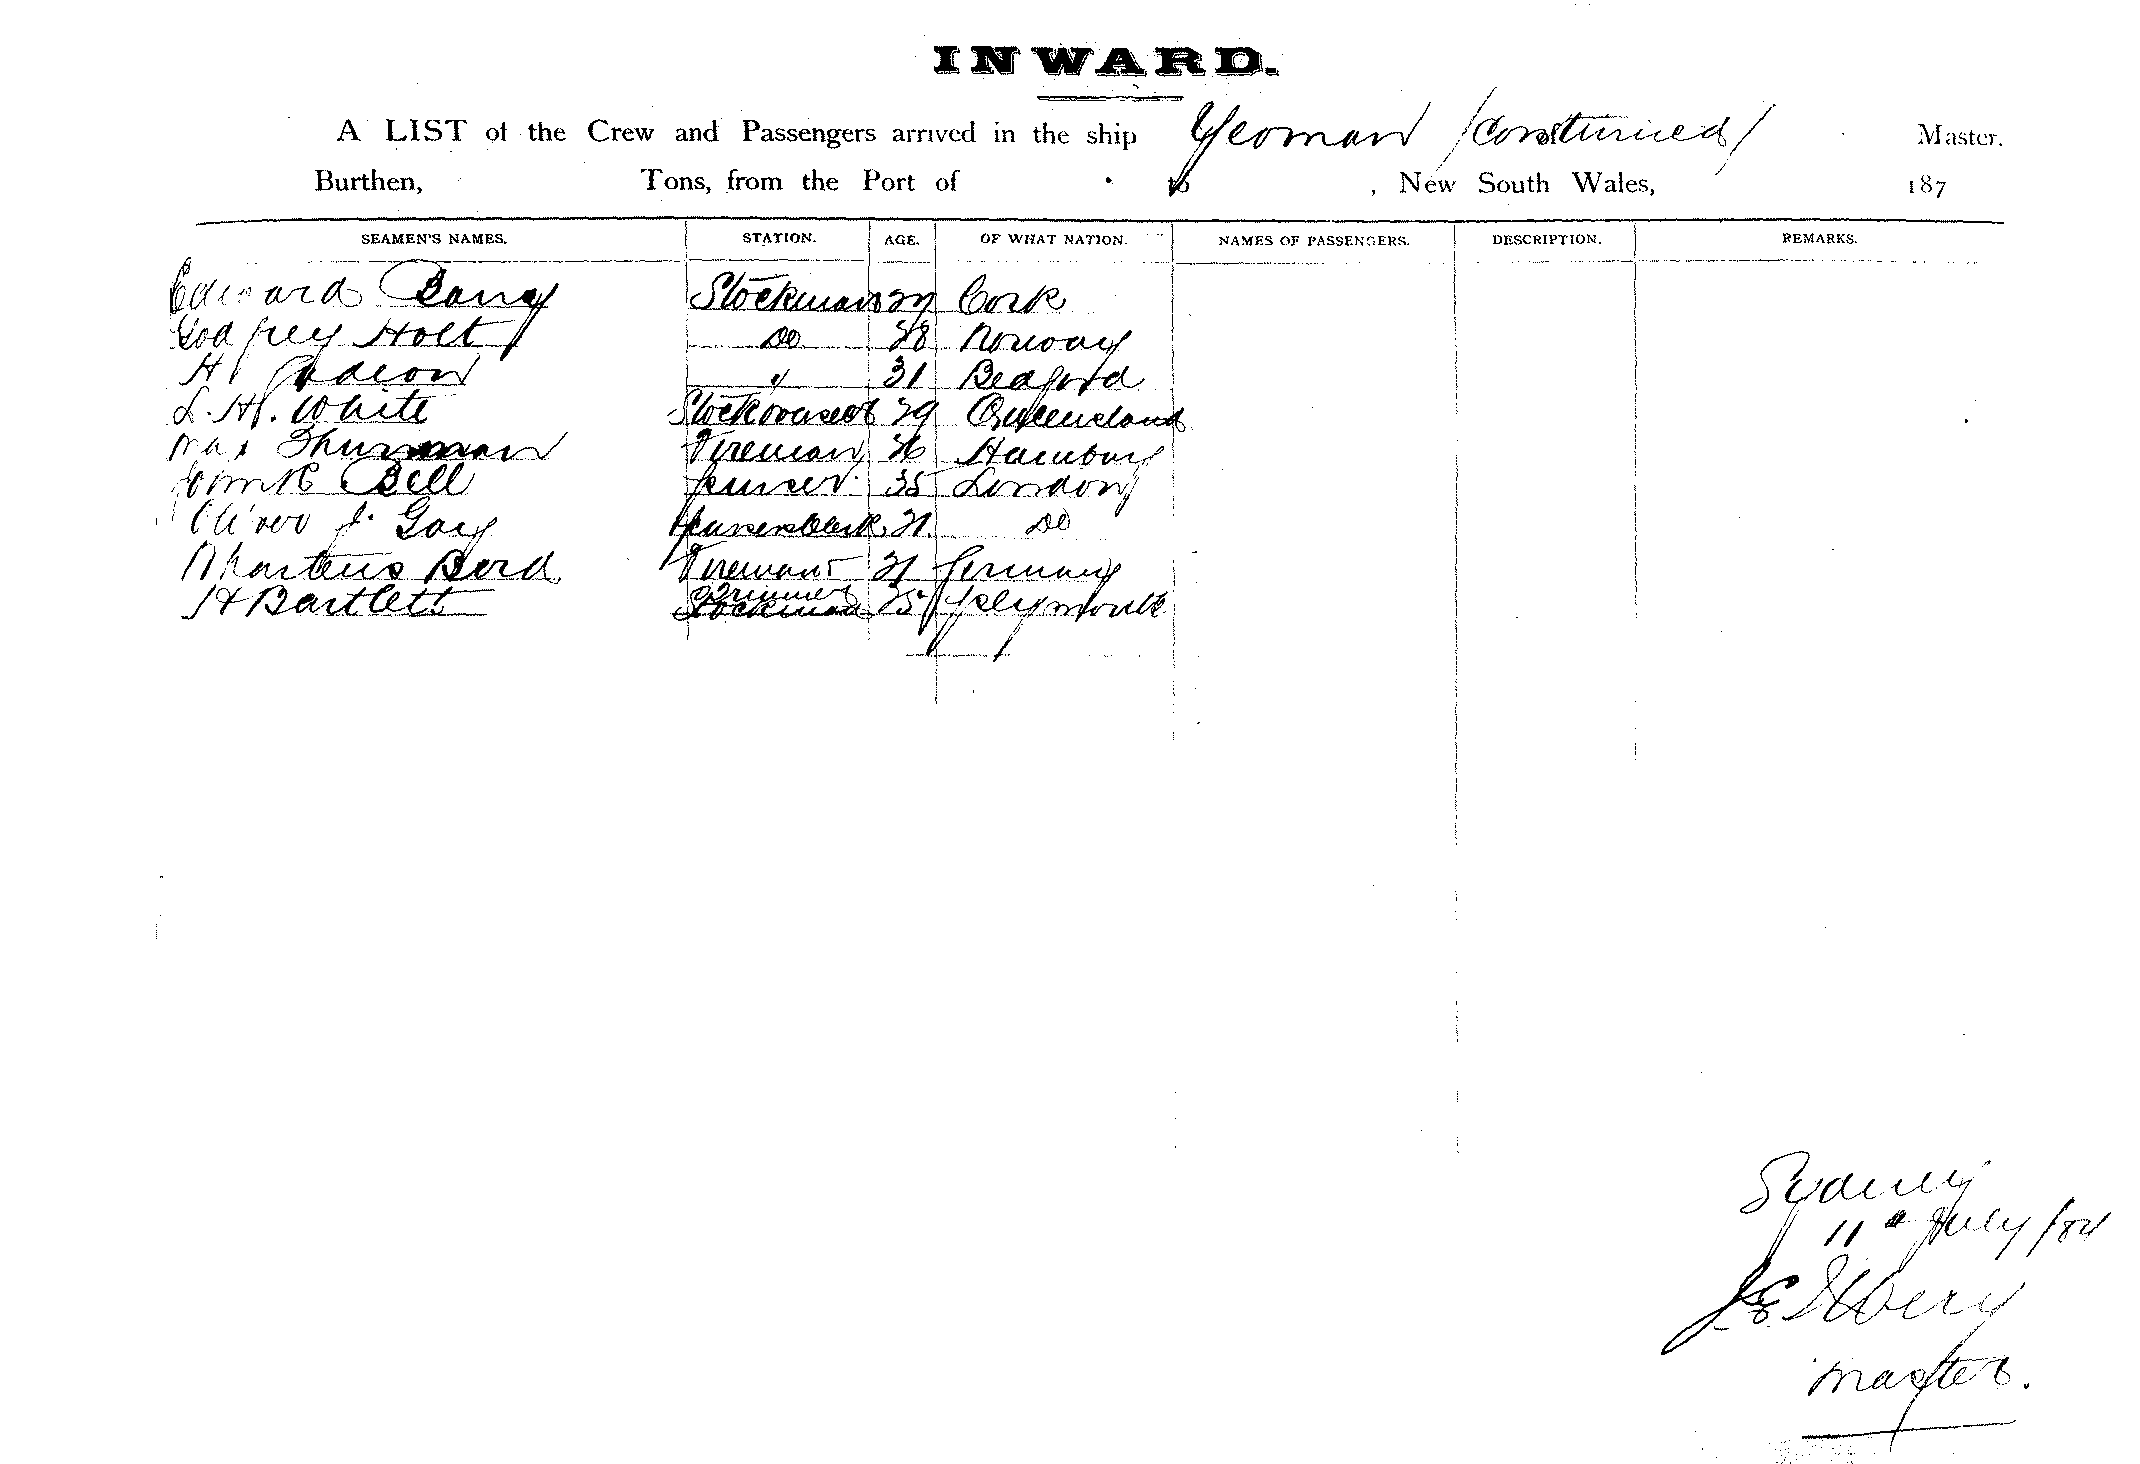 INWARD.
A LIST of the Crew and Passengers arrived in the ship Yeoman (Continued) Master.
Burthen, Tons, from the Port of to , New South Wales, 187
SEAMEN'S NAMES. STATION. AGE. OF WHAT NATION. NAMES OF PASSENGERS. DESCRIPTION. REMARKS.
Edward Stockman 29 Cork
Godfrey Holt Do 28 Norway
H 31 Bedford
L. H. White 29 Queensland
Max Thurman Fireman 26 Hamburg
Bell purser 35 London
J. Gay pursers Clerk 21 Do
Fireman 21 Germany
H Bartlett Trimmer 25 Plymouth
Sydney
11th July /84
J E
Master.